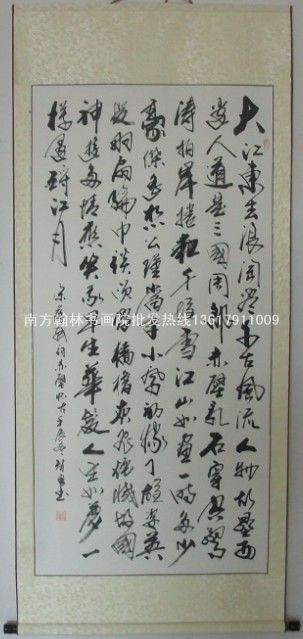 大江東去浪淘盡千古風流人物故壘西
邊人道是三國周郎赤壁亂石穿空驚
濤拍岸捲起千堆雪江山如畫一時多少
豪傑遙想公瑾當年小喬初嫁了雄姿英
發羽扇綸巾談笑間檣櫓灰飛煙滅故國
神遊多情應笑我早生華髮人生如夢一
樽還酹江月
宋蘇軾詞赤壁懷古
南方翰林书画院批发热线13617911009